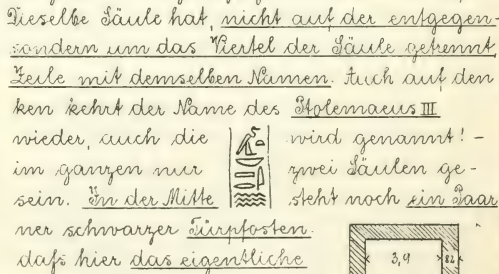 Dieselbe Säule hat, nicht auf der entgegen-
sondern um das Viertel der Säule getrennt
Zeile mit demselben Namen. Auch auf den
ken kehrt der Name des Ptolemaeus III
wieder, auch die wird genannt! –
im ganzen nur zwei Säulen ge-
sein. In der Mitte steht noch ein Paar
ner schwarzer Türpfosten.
daß hier das eigentliche
3,9 82